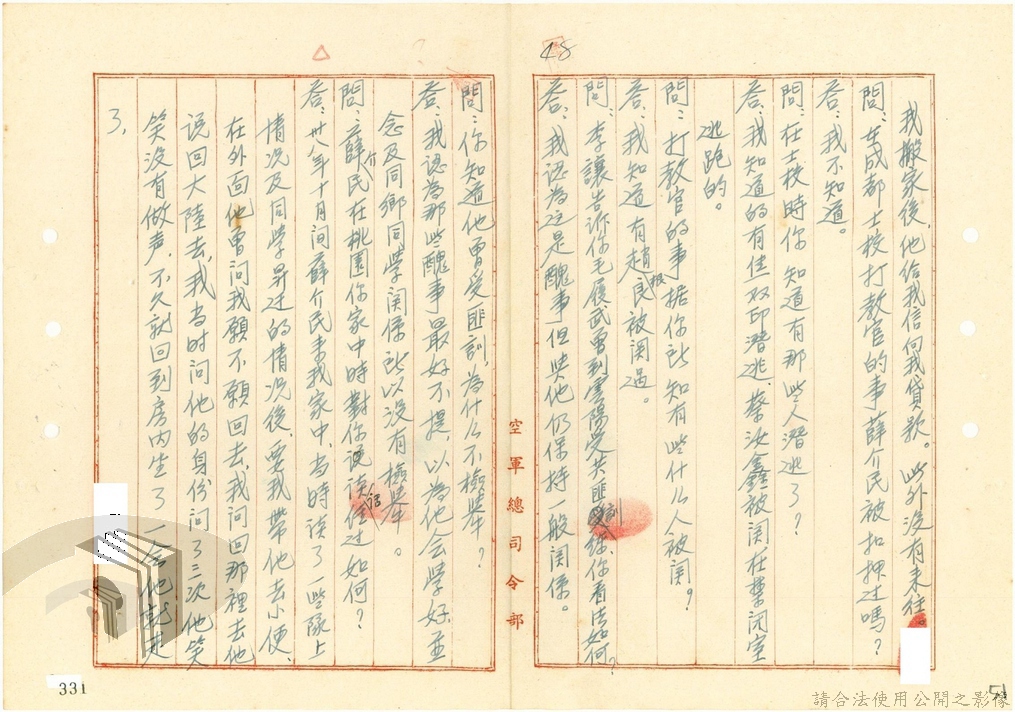 48
我搬家後，他給我信向我貸款。此外沒有來往
問：在成都士校打教官的事薛介民被扣押过嗎？
答：我不知道。
問：在士校時你知道有那些人潛逃了？
答：我知道的有焦 印潛逃、蔡汝鑫被関在禁闭室
逃跑的。
問：打教官的事据你所知有些什么人被関？
答：我知道有趙振民被関過。
問：李讓告诉你毛履武曾到 陽受共匪訓练你看法如何？
答：我認為这是醜事但與他仍保持一般関係。
空軍總司令部
問：你知道他曾受匪訓，為什么不檢举？
答：我認為那些醜事最好不提，以為他会學好並
念及同鄉同學関係所以没有檢举。
問：薛介民在桃園你家中時對你说 話过如何？
答：卅八年十月间薛介民来我家中，当時谈了一些隊上
情況及同学昇迁的情況後，要我帶他去小便，
在外面他曾问我願不願回去，我问回那裡去他
说回大陸去，我当时问他的身份问了三次他笑
笑没有做声，不久就回到房内坐了一会他就走
了，
331
51
請合法使用公開之影像